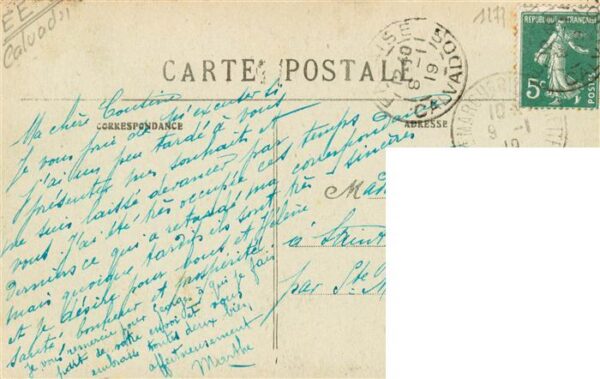 EE
Calvados
1177
RÉPUBLIQUE FRANÇAISE
5c
POSTES
CALVADOS
CARTE POSTALE
CORRESPONDANCE
ADRESSE
Ma chère Cousine
Je vous prie de m'excuser si
j'ai un peu tardé à vous
présenter mes souhaits et
me suis laissé devancer par
vous. J'ai été très occupée ces temps
derniers ce qui a retardé ma correspondance
mais quoique tardifs ils sont très sincères
et je désire pour vous et Hélène
santé, bonheur et prospérité.
Je vous remercie pour Georges à qui je fais
part de votre envoi et vous
embrasse toutes deux bien
affectueusement
Marthe
à Saint
par Ste